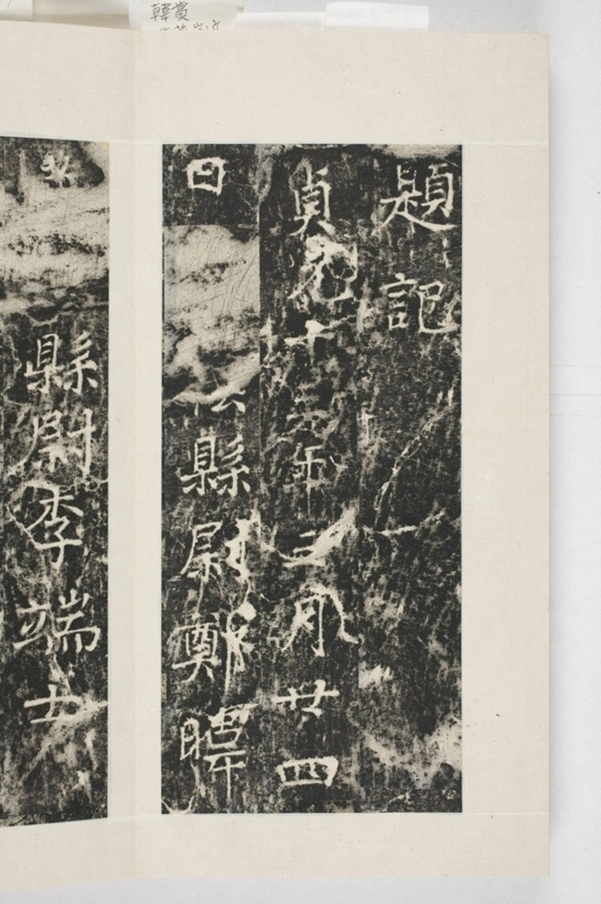 題記
貞元十三年三月廿四
日
縣尉鄭暐
縣尉李端士
韓賞